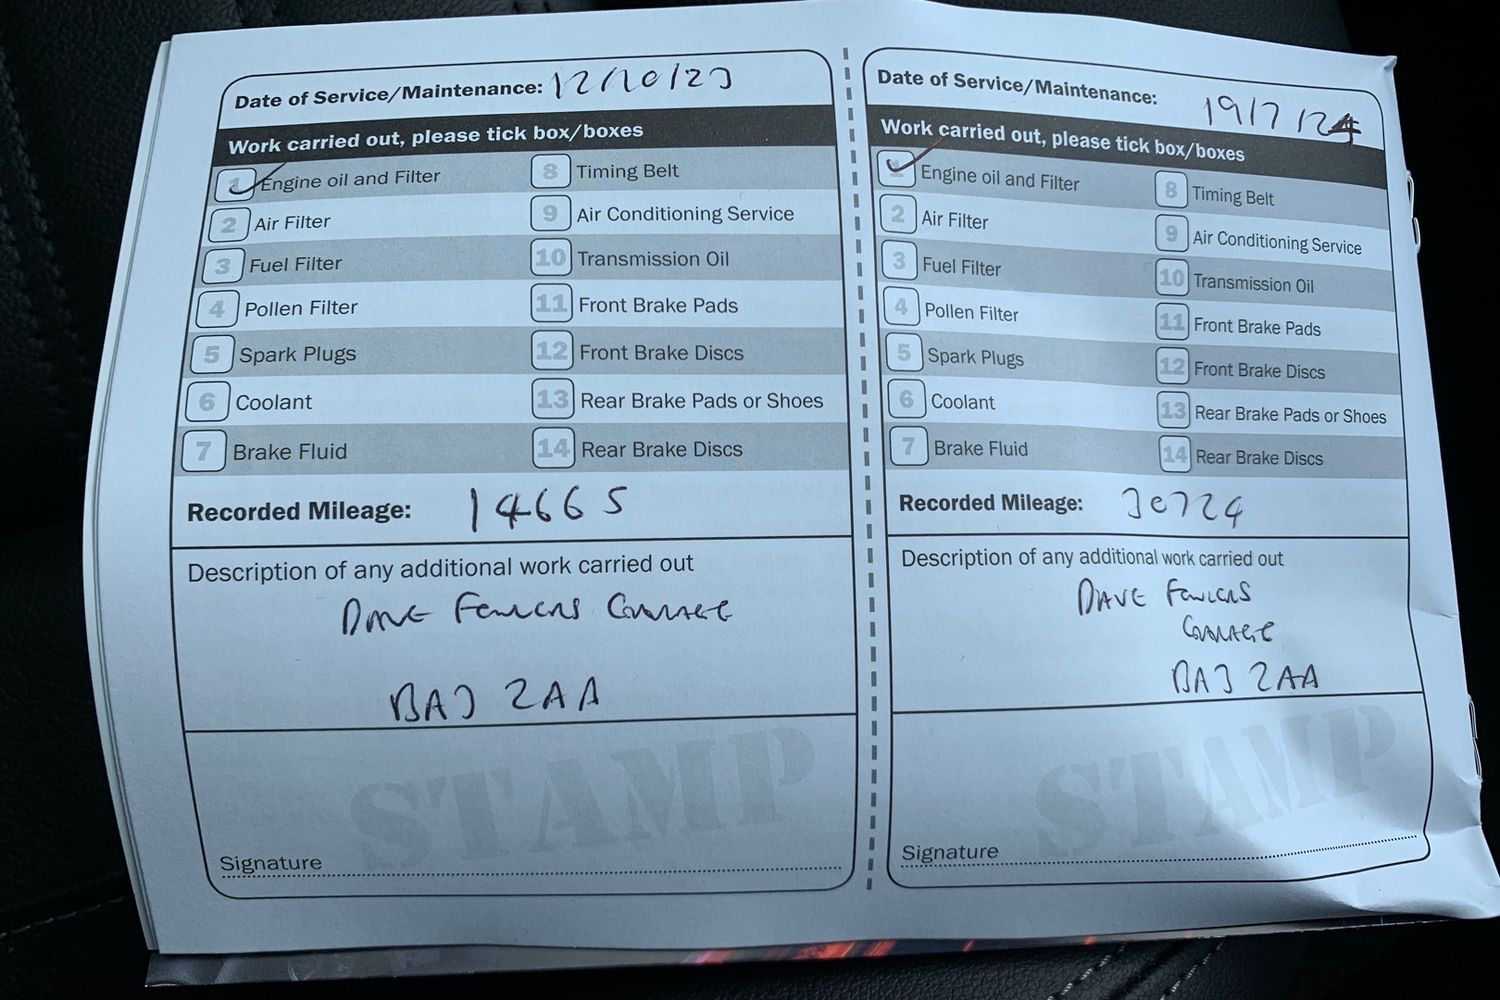 Date of Service/Maintenance: 12/10/23
Work carried out, please tick box/boxes
1 Engine oil and Filter
2 Air Filter
3 Fuel Filter
4 Pollen Filter
5 Spark Plugs
6 Coolant
7 Brake Fluid
8 Timing Belt
9 Air Conditioning Service
10 Transmission Oil
11 Front Brake Pads
12 Front Brake Discs
13 Rear Brake Pads or Shoes
14 Rear Brake Discs
Recorded Mileage: 14665
Description of any additional work carried out
DAVE
BA3 2AA
STAMP
Signature
Date of Service/Maintenance: 19/7/24
Work carried out, please tick box/boxes
Engine oil and Filter
2 Air Filter
3 Fuel Filter
4 Pollen Filter
5 Spark Plugs
6 Coolant
7 Brake Fluid
8 Timing Belt
9 Air Conditioning Service
10 Transmission Oil
11 Front Brake Pads
12 Front Brake Discs
13 Rear Brake Pads or Shoes
14 Rear Brake Discs
Recorded Mileage: 30724
Description of any additional work carried out
DAVE
BA3 2AA
STAMP
Signature